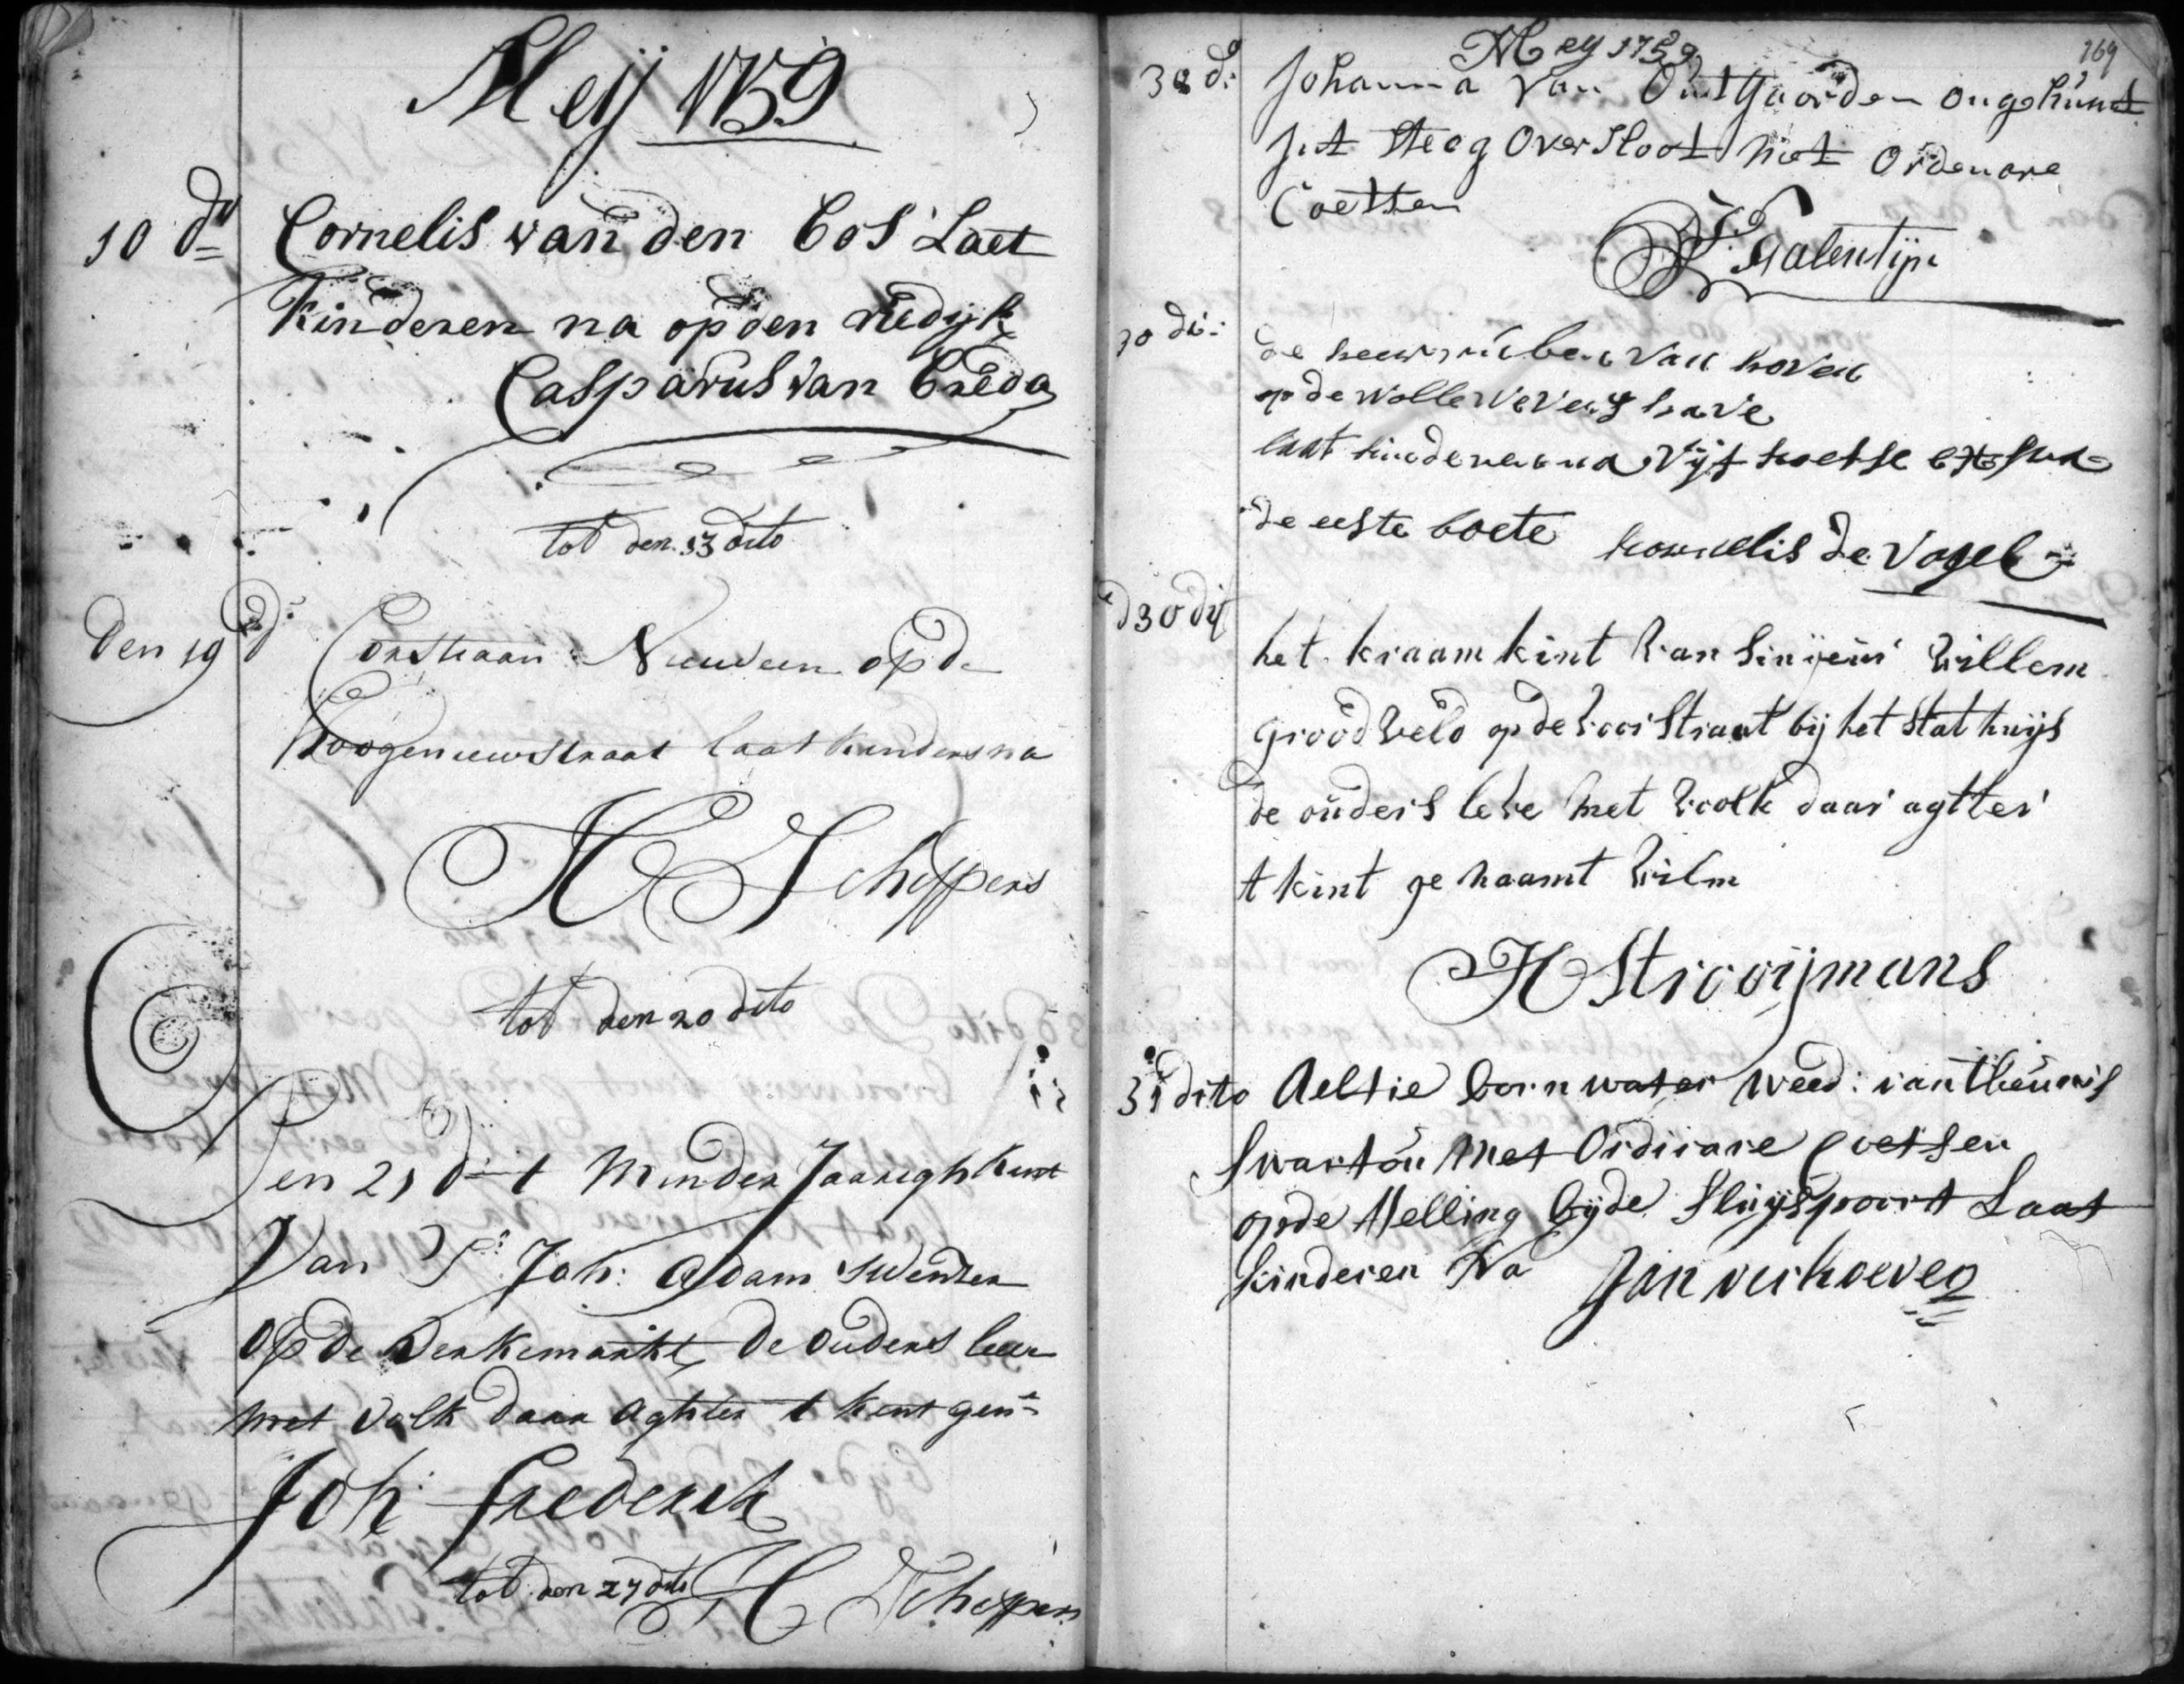 Meij 1759
10 dº Cornelis van den Bos Laet
kinderen na op den riedijk
Casparus van Breda
tot den 13 dito
Den 19 d: Corstiaan Nieuveen op de
hoogenieuwstraat laat kinders na
H Scheppers
tot den 20 dito
Den 21 d: t Minder Jaarigh kint
Van Sr: Joh: Adam
op de Varkemarkt, de ouders leven
met Volk daar aghter t kint gen:
Joh: frederick
tot den 27 dito H Scheppers
169
Mey 1759
30 d: Johanna Van OutGaarden ongehuwt
int steeg Over sloot met Ordenare
Coetsen
Valentijn
30 dit: de heer ruben Van hoven
op de Wolle Wevers have
laat kinderen na Vijf koetse extra
de eeste boete kornelis de Vogel
d 30 dit het kraam kint Van sinjeur Willem
grood Veld op de Voor Straat bij het stathuijs
de ouders leve met Volk daar agtter
t kint ge naamt Wilm
H Strooijmans
31 dito Aeltie bornwater Weed: van theunis
Swartou Met Ordinare Coetsen
op de Helling bij de Sluijspoort Laat
kinderen Na Jan verhoeven